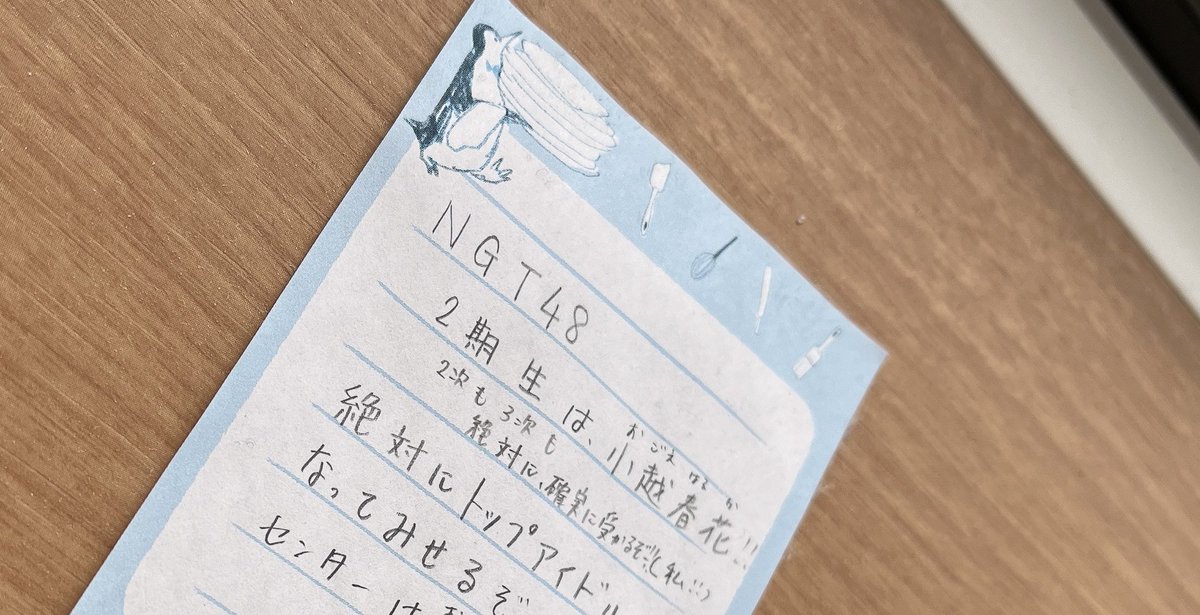 NGT48
おごえ はるか
2期生は、小越春花!!
2次も3次も
絶対に、確実に受かるぞ!!(私!!)
絶対にトップアイドル
なってみせるぞ
センターは